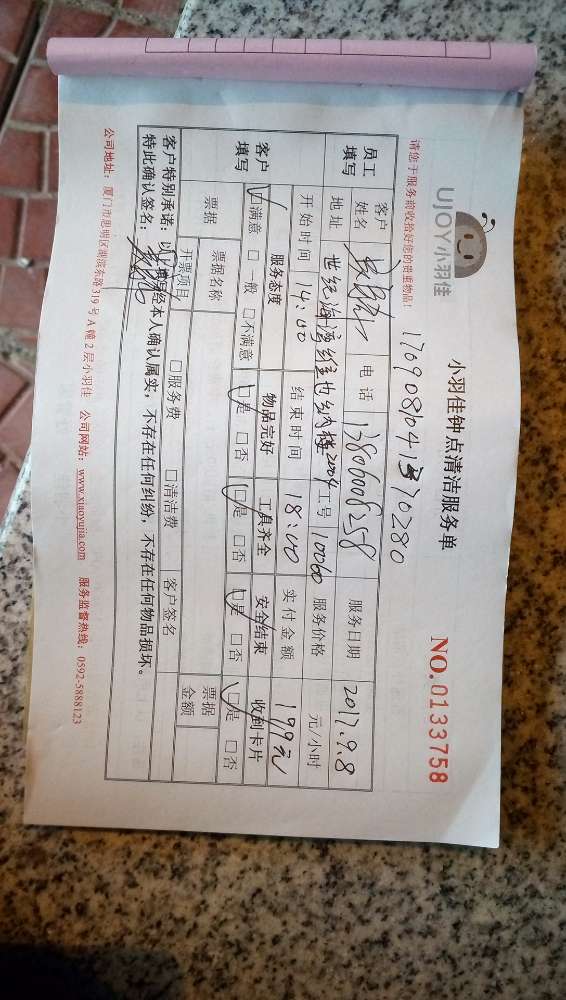 UJOY小羽佳
小羽佳钟点清洁服务单
NO.0133758
请您于服务前收拾好您的贵重物品!
17090810413370280
员工填写
客户姓名 电话 13806006258 服务日期 2017.9.8
地址 世纪海湾维也纳楼2204 工号 10060 服务价格 元/小时
开始时间 14:00 结束时间 18:00 实付金额 199元
客户填写
服务态度 物品完好 工具齐全 安全结束 收到卡片
☑满意 □一般 □不满意 ☑是 □否 ☑是 □否 ☑是 □否 ☑是 □否
票据 票据名称 票据金额
开票项目 □服务费 □清洁费 客户签名
客户特别承诺:以上填写经本人确认属实,不存在任何纠纷,不存在任何物品损坏。
特此确认签名:
公司地址:厦门市思明区湖滨东路319号A幢2层小羽佳 公司网站:www.xiaoyujia.com 服务监督热线:0592-5888123